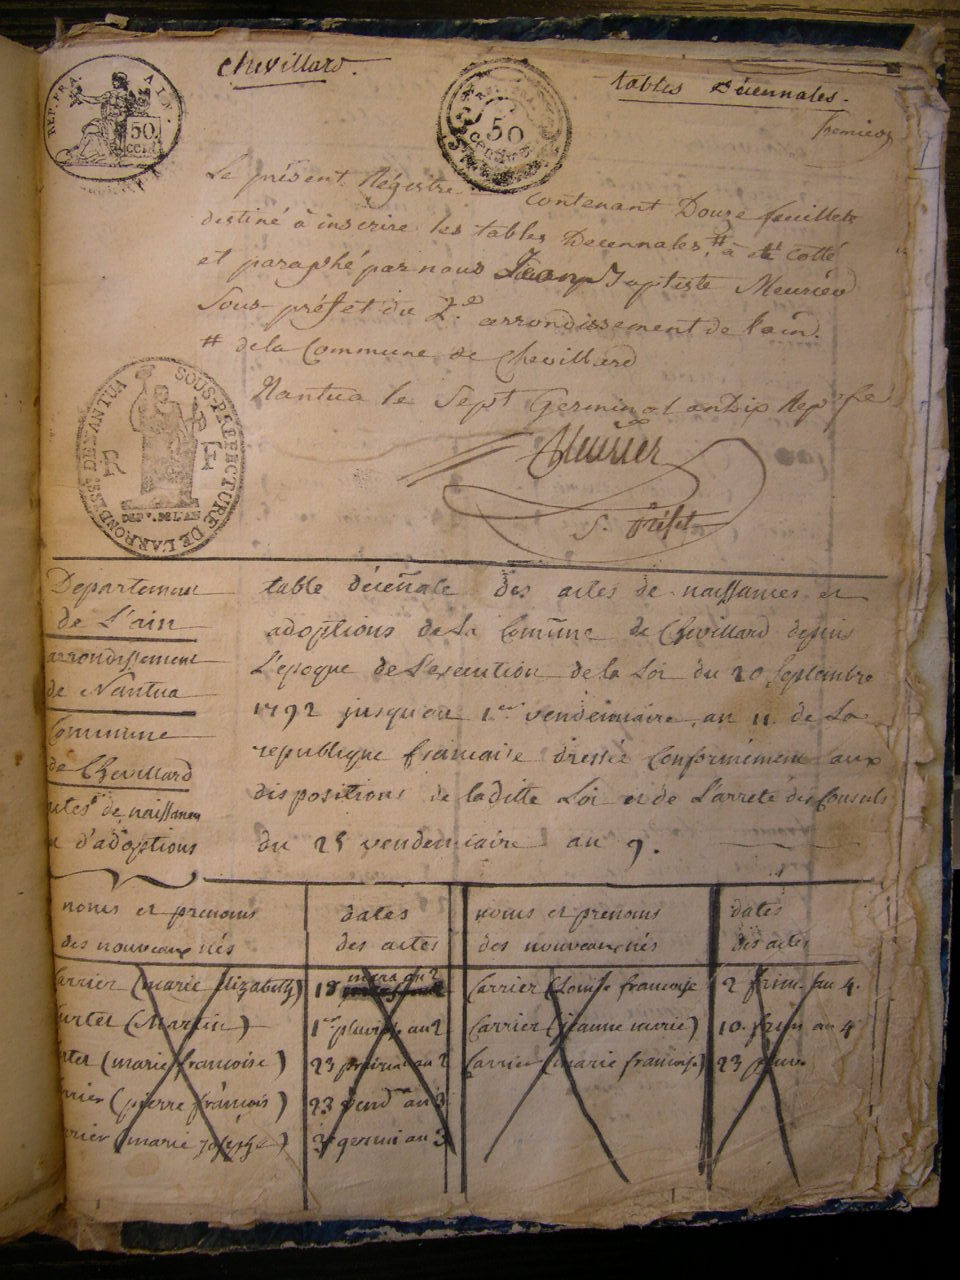 Chevillard.
tables décennales.
REP. FRA.
50
cent.
50
centimes
Le présent Régistre contenant Douze feuillets
destiné à inscrire les tables Decennales, # à été Cotté
et paraphé par nous Jean Baptiste Meurier
Sous-préfet du 2.e arrondissement de l'ain.
# de la Commune de Chevillard
Nantua le Sept Germinal an Dix Rep. fse
Meurier
S. Préfet
SOUS-PREFECTURE DE L'ARRONDISS. DE NANTUA
DEP.t DE L'AIN
Departement
de L'ain
arrondissement
de Nantua
Commune
de Chevillard
actes de naissances
d'adoptions
table décennale des actes de naissances et
adoptions de la Commune de Chevillard depuis
L'époque de L'execution de la Loi du 20 Septembre
1792 jusqu'au 1er vendemiaire, an 11. de La
republique francaise dressée Conformement aux
dispositions de laditte Loi et de L'arreté des Consuls
du 25 vendemiaire an 9.
noms et prenoms
des nouveaux nés
dates
des actes
noms et prenoms
des nouveaux nés
dates
des actes
Carrier (marie Elizabeth) 18 mess an 2 Carrier (Louise francoise 2 frim. an 4.
(Martin) 1er pluvi. an 2 Carrier (jeanne marie) 10. frim an 4
(marie francoise) 23 prairial an 2 Carrier (marie francoise) 23 pluv.
(pierre francois) 23 vend an 3
(marie josephe) 3 germi an 3